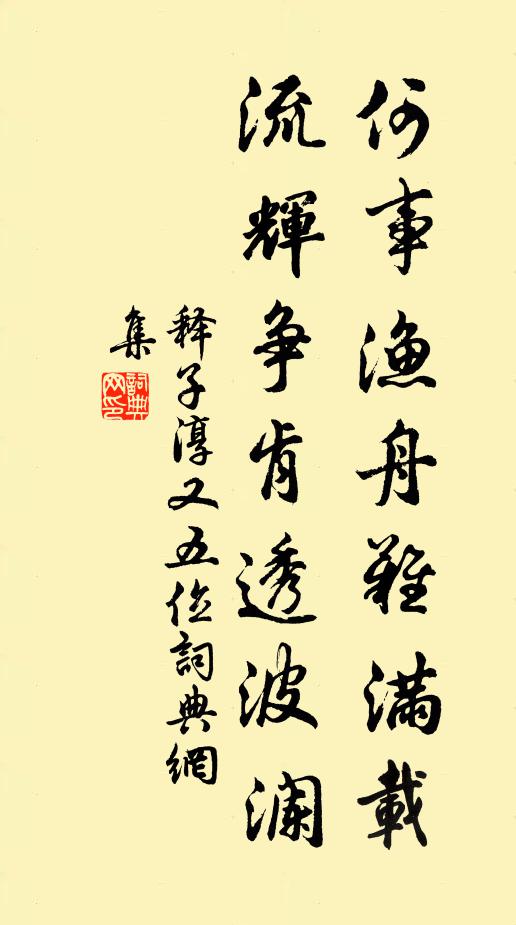 何事漁舟難滿載
流輝争肯透波瀾
释子淳又五位詞典網
集
詞典
网印